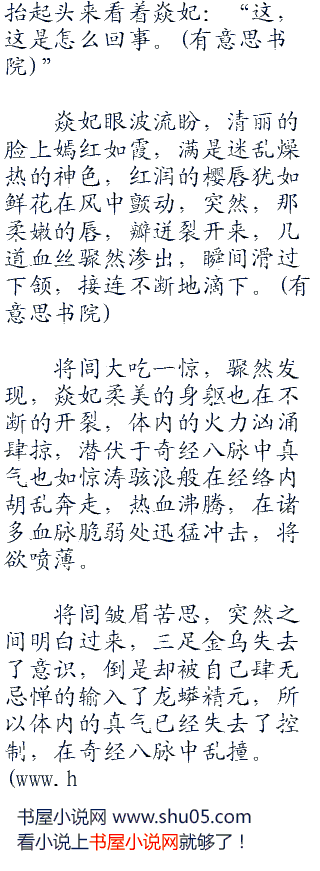 抬起头来看着焱妃：“这，
这是怎么回事。(有意思书
院)”
焱妃眼波流盼，清丽的
脸上嫣红如霞，满是迷乱燥
热的神色，红润的樱唇犹如
鲜花在风中颤动，突然，那
柔嫩的唇，瓣迸裂开来，几
道血丝骤然渗出，瞬间滑过
下颌，接连不断地滴下。(有
意思书院)
将闾大吃一惊，骤然发
现，焱妃柔美的身躯也在不
断的开裂，体内的火力汹涌
肆掠，潜伏于奇经八脉中真
气也如惊涛骇浪般在经络内
胡乱奔走，热血沸腾，在诸
多血脉脆弱处迅猛冲击，将
欲喷薄。
将闾皱眉苦思，突然之
间明白过来，三足金乌失去
了意识，倒是却被自己肆无
忌惮的输入了龙蟒精元，所
以体内的真气已经失去了控
制，在奇经八脉中乱撞。
(www.h
书屋小说网 www.shu05.com
看小说上书屋小说网就够了！